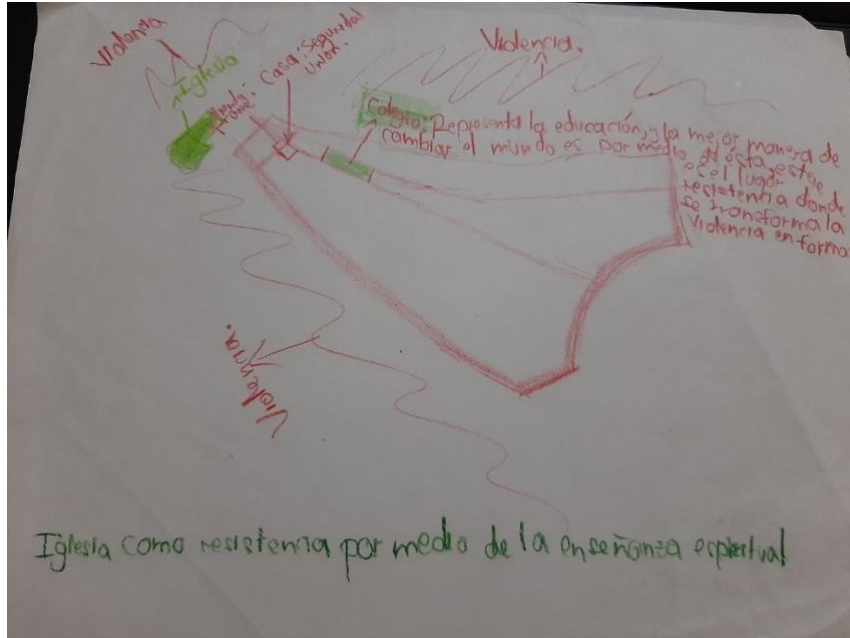 Violencia
Iglesia
Casa: Seguridad
Unión.
Violencia.
Colegio: Representa la educación, y la mejor manera de
cambiar el mundo es por medio de ésta, este
es el lugar
resistencia donde
se transforma la
violencia en forma
Violencia.
Iglesia como resistencia por medio de la enseñanza espiritual